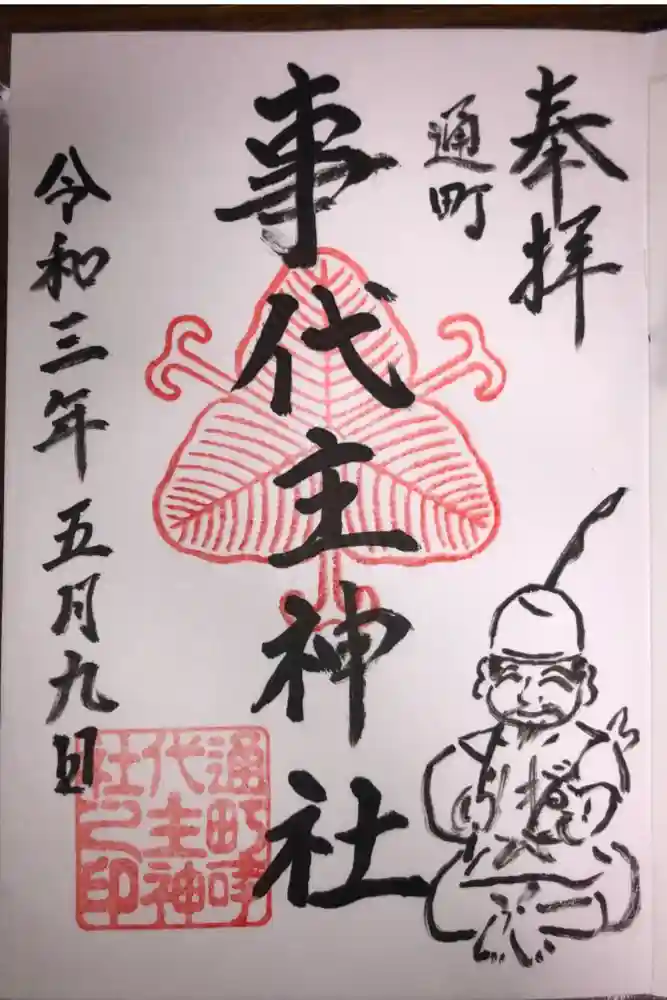 奉拝
通町
事代主神社
令和三年五月九日
通町事
代主神
社之印